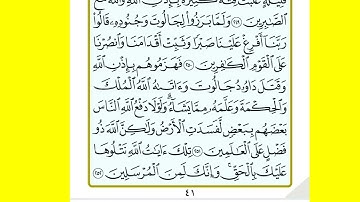 قَلِيلَةٍ غَلَبَتْ فِئَةً كَثِيرَةً بِإِذْنِ ٱللَّهِ وَٱللَّهُ مَعَ
ٱلصَّٰبِرِينَ ٢٤٩ وَلَمَّا بَرَزُوا۟ لِجَالُوتَ وَجُنُودِهِۦ قَالُوا۟
رَبَّنَآ أَفْرِغْ عَلَيْنَا صَبْرًا وَثَبِّتْ أَقْدَامَنَا وَٱنصُرْنَا
عَلَى ٱلْقَوْمِ ٱلْكَٰفِرِينَ ٢٥٠ فَهَزَمُوهُم بِإِذْنِ ٱللَّهِ
وَقَتَلَ دَاوُۥدُ جَالُوتَ وَءَاتَىٰهُ ٱللَّهُ ٱلْمُلْكَ
وَٱلْحِكْمَةَ وَعَلَّمَهُۥ مِمَّا يَشَآءُ ۗ وَلَوْلَا دَفْعُ ٱللَّهِ ٱلنَّاسَ
بَعْضَهُم بِبَعْضٍ لَّفَسَدَتِ ٱلْأَرْضُ وَلَٰكِنَّ ٱللَّهَ ذُو
فَضْلٍ عَلَى ٱلْعَٰلَمِينَ ٢٥١ تِلْكَ ءَايَٰتُ ٱللَّهِ نَتْلُوهَا
عَلَيْكَ بِٱلْحَقِّ ۚ وَإِنَّكَ لَمِنَ ٱلْمُرْسَلِينَ ٢٥٢
٤١